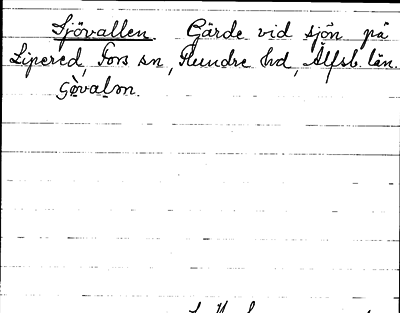 Sjövallen. Gärde vid sjön på
Lipered, Fors sn, Flundre hd, Älfsb. län.
Gòvalṃ.